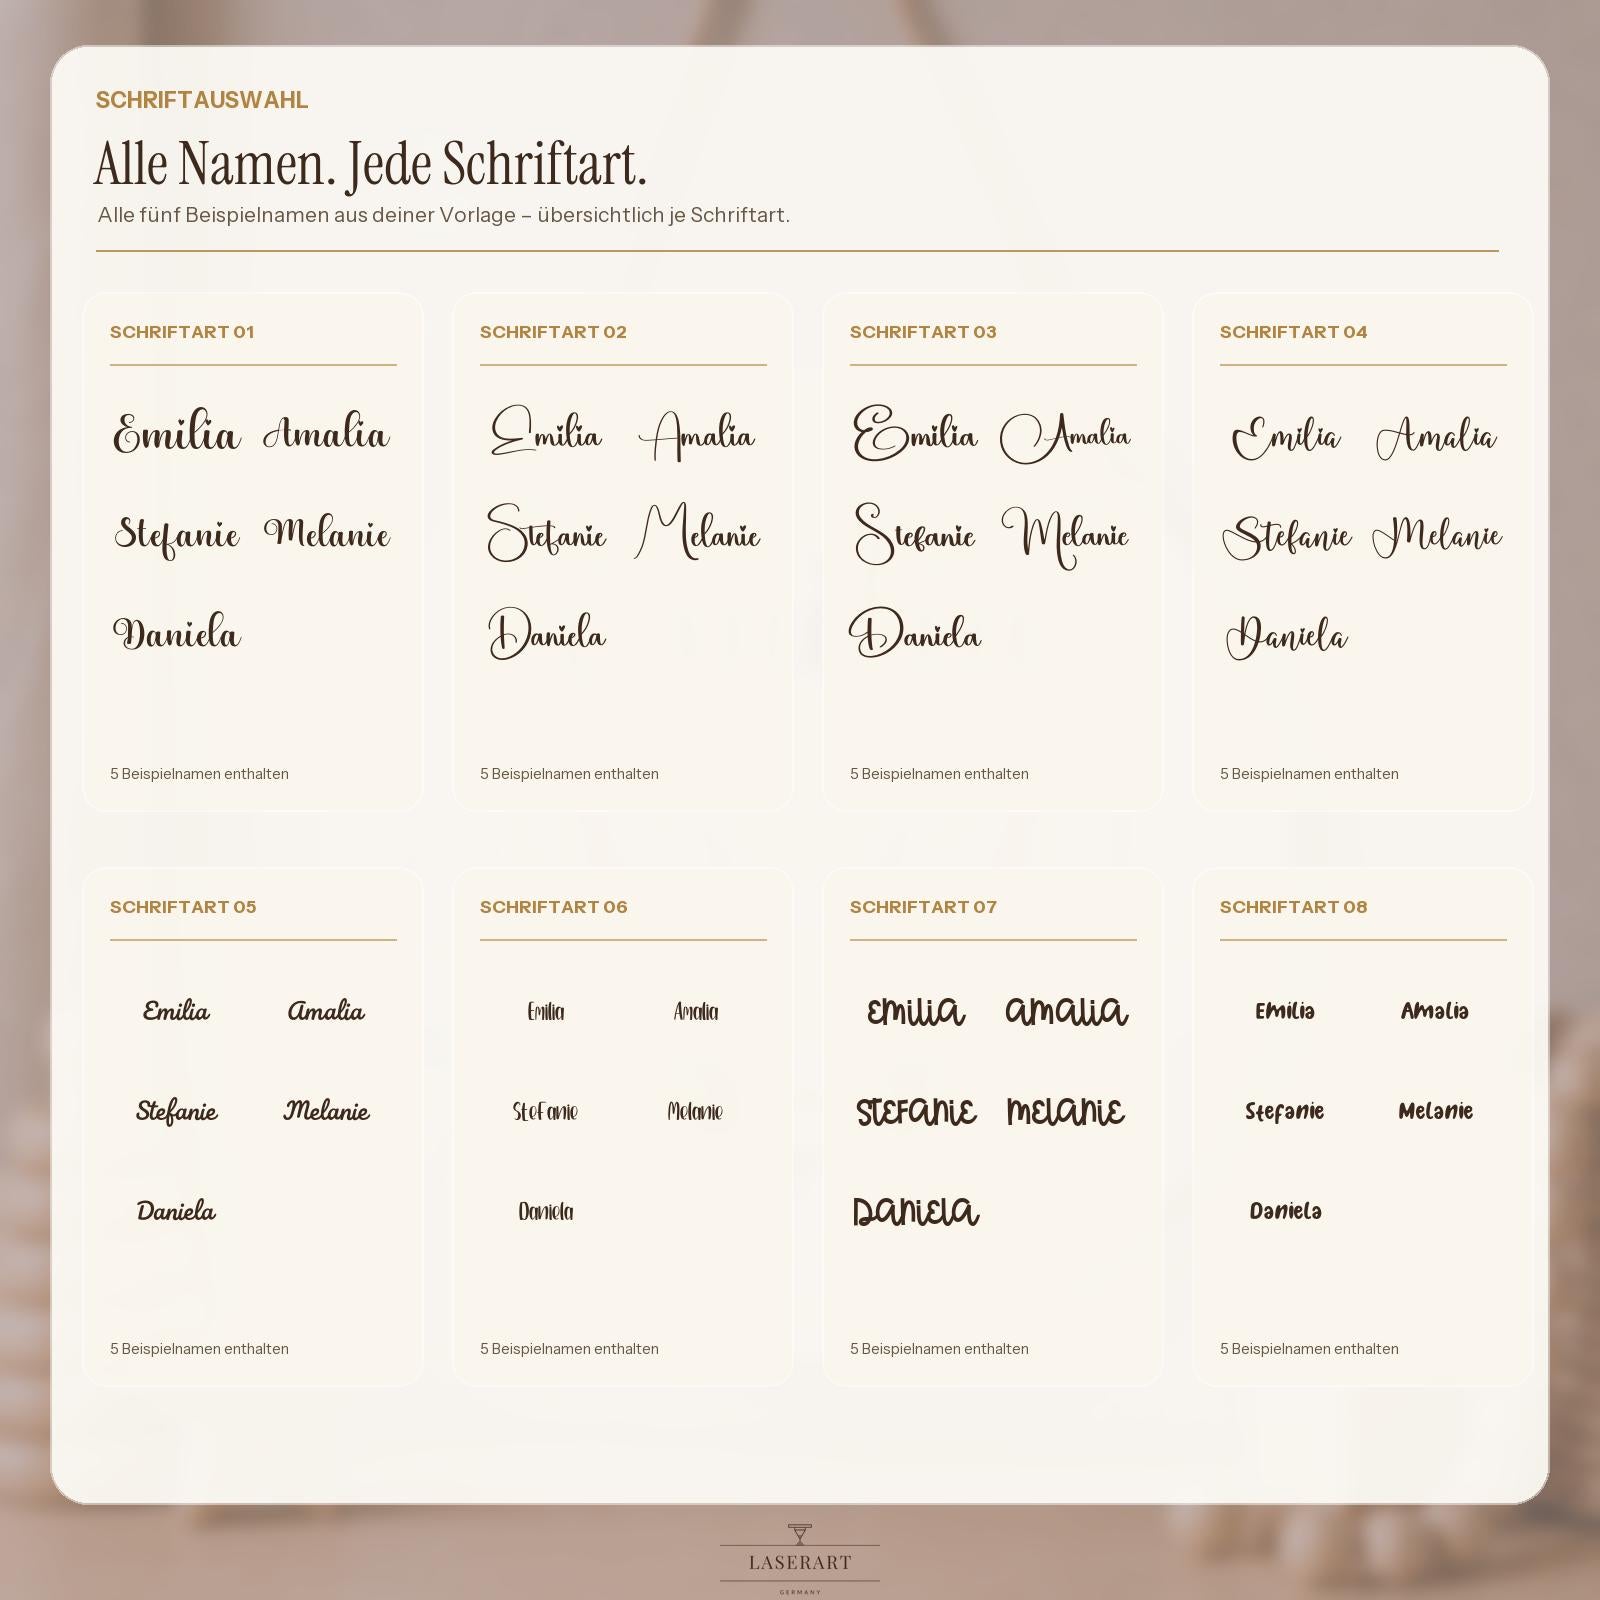 SCHRIFTAUSWAHL
Alle Namen. Jede Schriftart.
Alle fünf Beispielnamen aus deiner Vorlage – übersichtlich je Schriftart.
SCHRIFTART 01
Emilia Amalia
Stefanie Melanie
Daniela
5 Beispielnamen enthalten
SCHRIFTART 02
Emilia Amalia
Stefanie Melanie
Daniela
5 Beispielnamen enthalten
SCHRIFTART 03
Emilia Amalia
Stefanie Melanie
Daniela
5 Beispielnamen enthalten
SCHRIFTART 04
Emilia Amalia
Stefanie Melanie
Daniela
5 Beispielnamen enthalten
SCHRIFTART 05
Emilia Amalia
Stefanie Melanie
Daniela
5 Beispielnamen enthalten
SCHRIFTART 06
Emilia Amalia
Stefanie Melanie
Daniela
5 Beispielnamen enthalten
SCHRIFTART 07
Emilia Amalia
Stefanie Melanie
Daniela
5 Beispielnamen enthalten
SCHRIFTART 08
Emilia Amalia
Stefanie Melanie
Daniela
5 Beispielnamen enthalten
LASERART
GERMANY